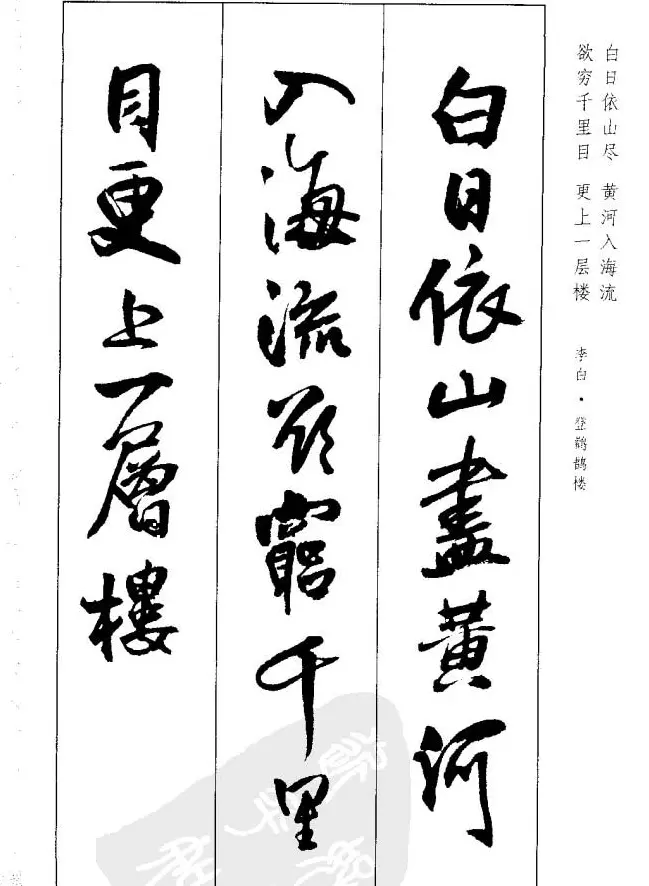 白日依山尽 黄河入海流
欲穷千里目 更上一层楼
李白·登鹳鹊楼
白日依山盡黃河
入海流欲窮千里
目更上一層樓